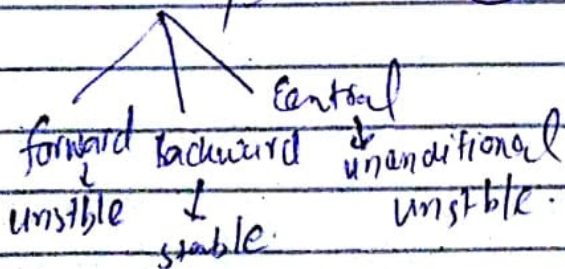 Central
forward Backward unanditional
unstble stable unstble.